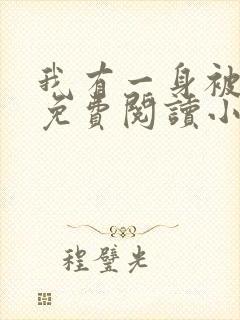 我有一身被
免費閱讀小
程璧光